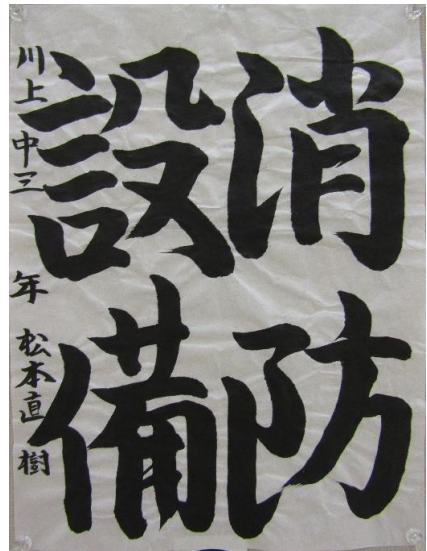 消防
設備
川上中三年 松本直樹